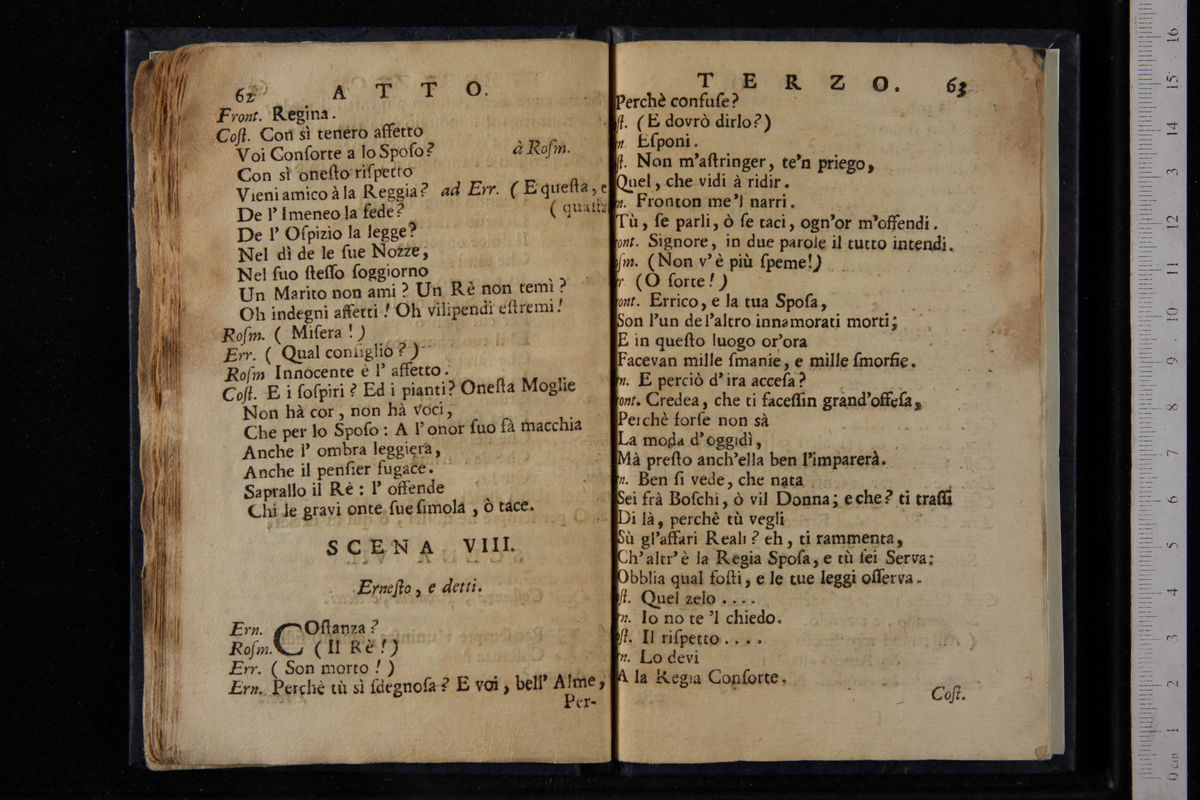 62 ATTO.
Front. Regina.
Coſt. Con sì tenero affetto
Voi Conſorte a lo Spoſo? à Roſm.
Con sì oneſto riſpetto
Vieni amico à la Reggia? ad Err. (E queſta, e
De l'Imeneo la fede? (
De l'Oſpizio la legge?
Nel dì de le ſue Nozze,
Nel ſuo ſteſſo ſoggiorno
Un Marito non ami? Un Rè non temi?
Oh indegni affetti! Oh vilipendi eſtremi!
Roſm. (Miſera!)
Err. (Qual conſiglio?)
Roſm Innocente è l'affetto.
Coſt. E i ſoſpiri? Ed i pianti? Oneſta Moglie
Non hà cor, non hà voci,
Che per lo Spoſo: A l'onor ſuo fà macchia
Anche l'ombra leggiera,
Anche il penſier fugace.
Saprallo il Rè: l'offende
Chi le gravi onte ſue ſimola, ò tace.
SCENA VIII.
Erneſto, e detti.
Ern. COſtanza?
Roſm. (Il Rè!)
Err. (Son morto!)
Ern. Perchè tù sì ſdegnoſa? E voi, bell'Alme,
Per-
TERZO. 63
Perchè confuſe?
ſt. (E dovrò dirlo?)
n. Eſponi.
ſt. Non m'aſtringer, te'n priego,
Quel, che vidi à ridir.
n. Fronton me'l narri.
Tù, ſe parli, ò ſe taci, ogn'or m'offendi.
ont. Signore, in due parole il tutto intendi.
oſm. (Non v'è più ſpeme!)
r (O ſorte!)
ont. Errico, e la tua Spoſa,
Son l'un de l'altro innamorati morti;
E in queſto luogo or'ora
Facevan mille ſmanie, e mille ſmorfie.
n. E perciò d'ira acceſa?
ont. Credea, che ti faceſſin grand'offeſa,
Perchè forſe non sà
La moda d'oggidì,
Mà preſto anch'ella ben l'imparerà.
n. Ben ſi vede, che nata
Sei frà Boſchi, ò vil Donna; e che? ti traſſi
Di là, perchè tù vegli
Sù gl'affari Reali? eh, ti rammenta,
Ch'altr'è la Regia Spoſa, e tù ſei Serva:
Obblia qual foſti, e le tue leggi oſſerva.
oſt. Quel zelo....
rn. Io no te'l chiedo.
oſt. Il riſpetto....
n. Lo devi
A la Regia Conſorte.
Coſt.
0 cm 1 2 3 4 5 6 7 8 9 10 11 12 3 14 15 16